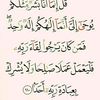 قُلْ إِنَّمَا أَنَا بَشَرٌ مِّثْلُكُمْ
يُوحَىٰ إِلَيَّ أَنَّمَا إِلَٰهُكُمْ إِلَٰهٌ وَاحِدٌ
فَمَن كَانَ يَرْجُوا لِقَاءَ رَبِّهِ
فَلْيَعْمَلْ عَمَلًا صَالِحًا وَلَا يُشْرِكْ
بِعِبَادَةِ رَبِّهِ أَحَدًا